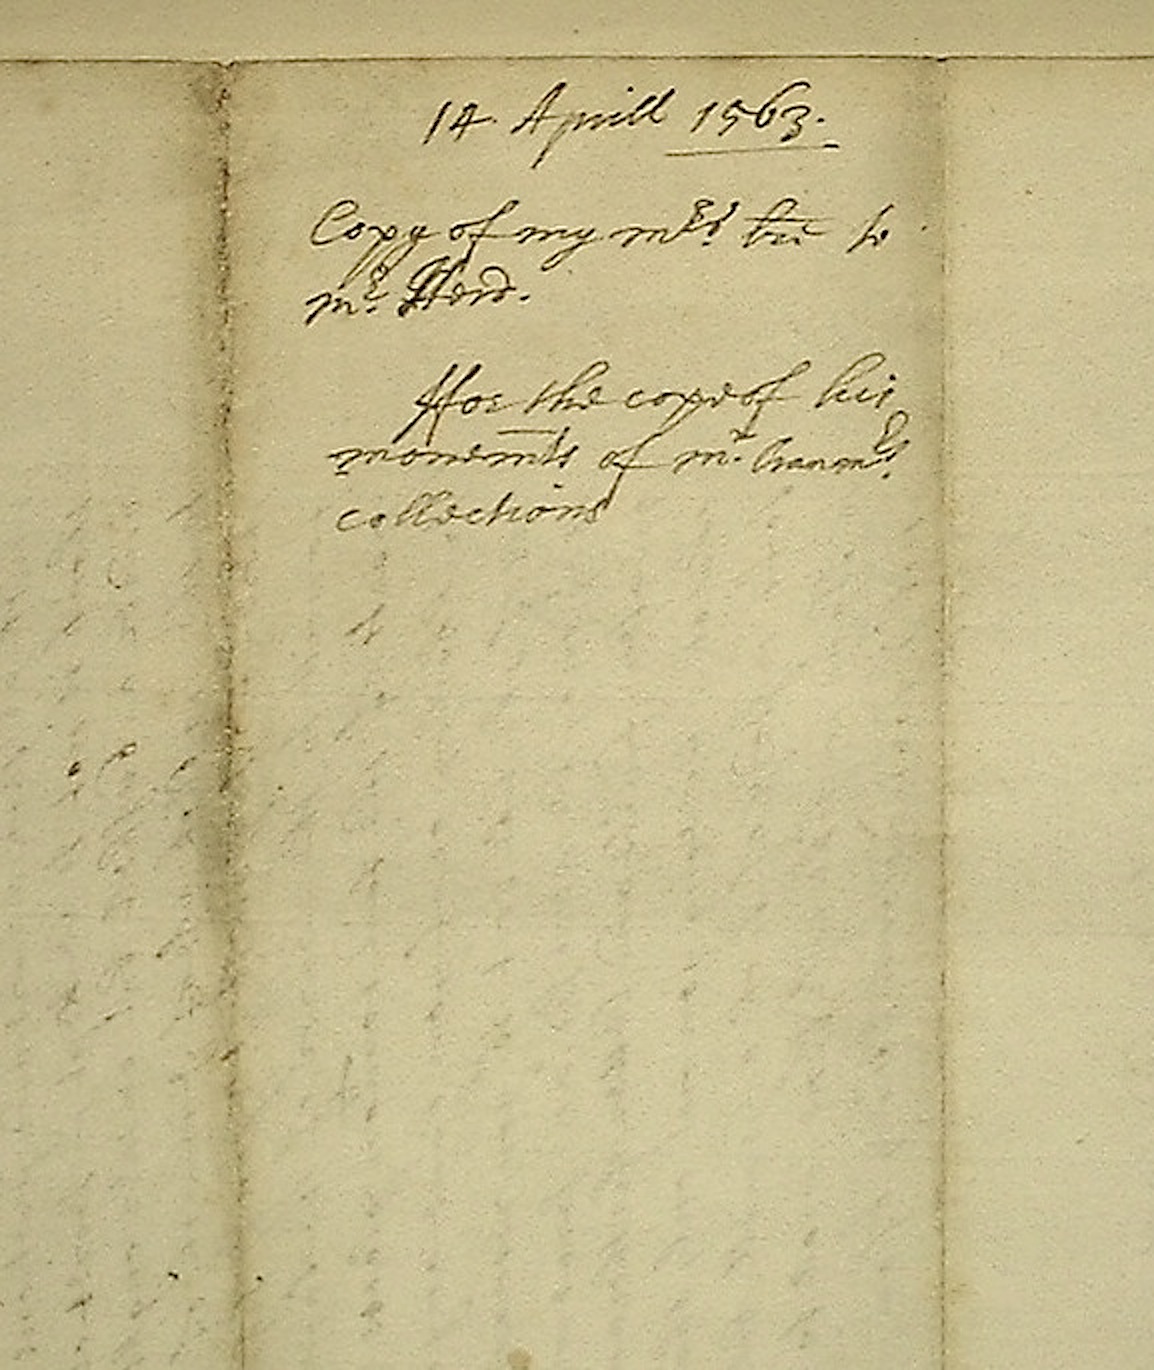 14. Aprill 1563.
Copy of my mrs. tre to
mr. Herd.
ffor the copye of his
monemts of mr. Cranmrs.
collections